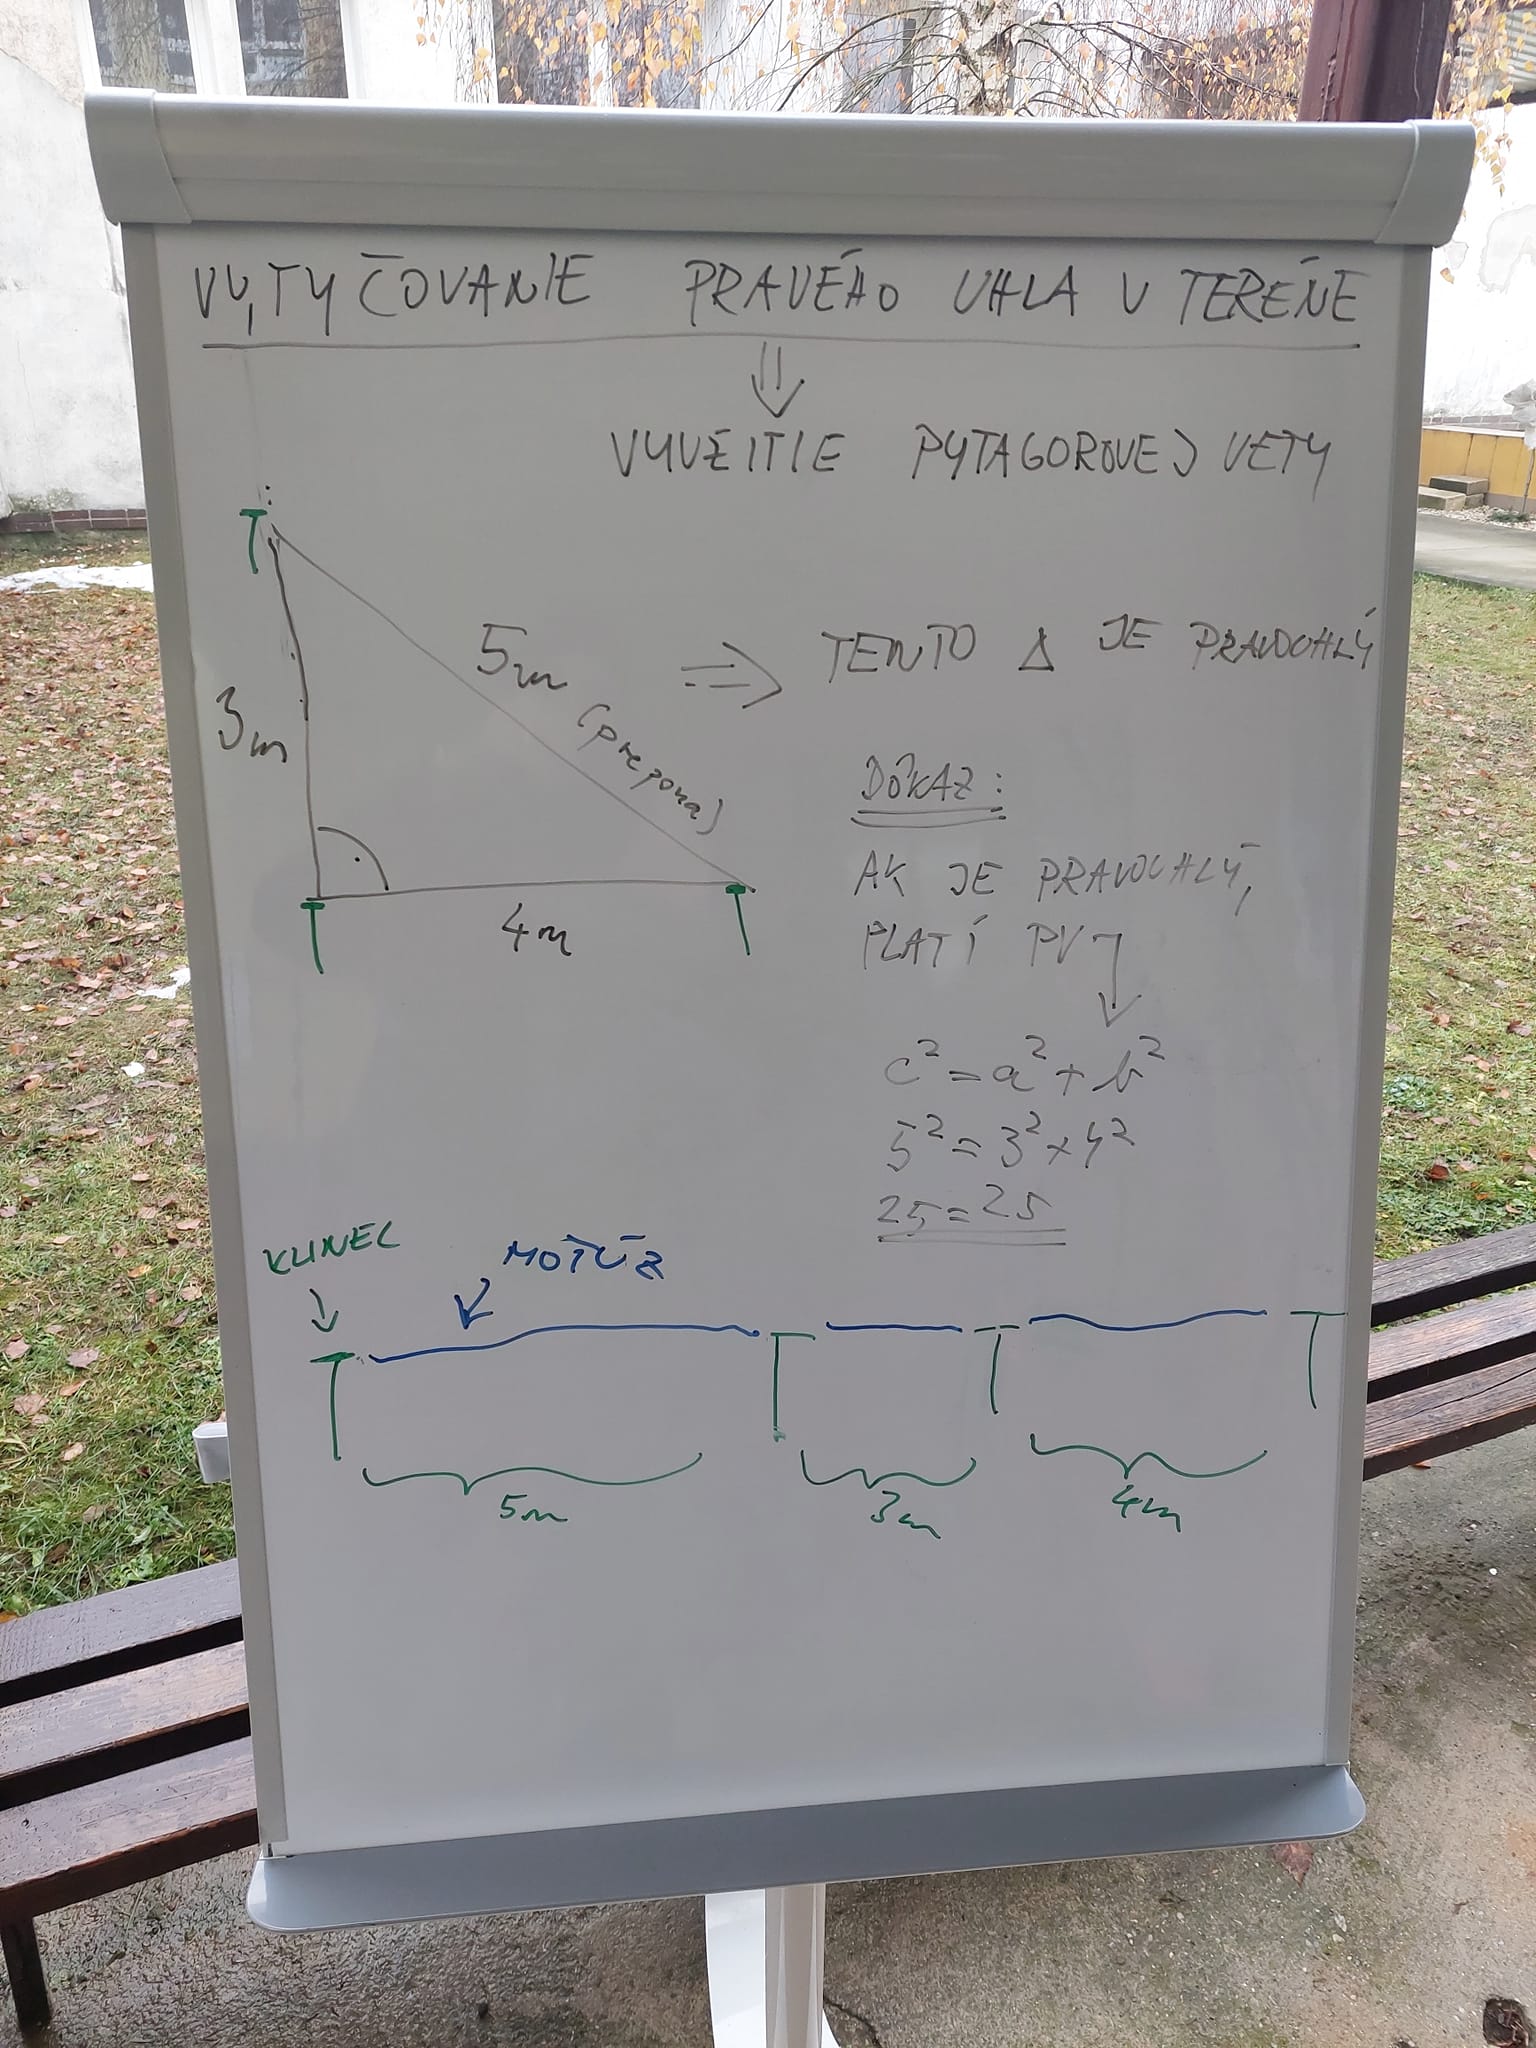 VYTYČOVANIE PRAVÉHO UHLA V TERÉNE
⇓
VYUŽITIE PYTAGOROVEJ VETY
5m (prepona)
3m
4m
⇒ TENTO Δ JE PRAVOUHLÝ
DÔKAZ:
AK JE PRAVOUHLÝ,
PLATÍ PV
c² = a² + b²
5² = 3² + 4²
25 = 25
KLINEC
MOTÚZ
5m
3m
4m